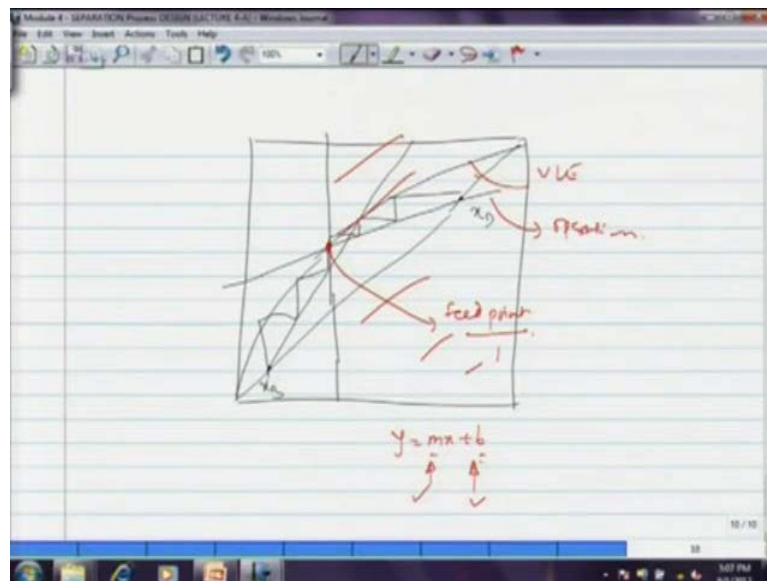 Module 4 - SEPARATION Process DESIGN (LECTURE 4-A) - Windows Journal
File Edit View Insert Actions Tools Help
100%
VLE
xD
feed point
xB
y = mx + b
10 / 10
10
5:07 PM